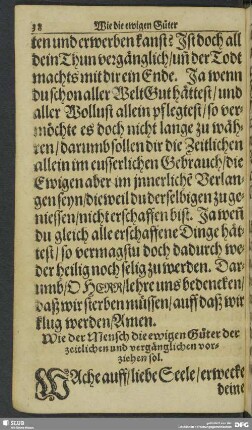 38 Wie die ewigen Güter
ten und erwerben kanst? Jst doch all
dein Thun vergänglich/ uñ der Todt
machts mit dir ein Ende. Ja wenn
du schon aller Welt Gut hättest/ und
aller Wollust allein pflegtest/ so ver-
möchte es doch nicht lange zu wäh-
ren/ darumb sollen dir die Zeitlichen
allein im eusserlichen Gebrauch/ die
Ewigen aber im jnnerlichē Verlan-
gen seyn/ dieweil du derselbigen zu ge-
niessen/ nicht erschaffen bist. Ja weñ
du gleich alle erschaffene Dinge hät-
test/ so vermagstu doch dadurch we-
der heilig noch selig zu werden. Dar-
umb/ O HERR/ lehre uns bedencken/
daß wir sterben müssen/ auff daß wir
klug werden/ Amen.
Wie der Mensch die ewigen Güter der
zeitlichen und vergänglichen vor-
ziehen sol.
WAche auff/ liebe Seele/ erwecke
deine